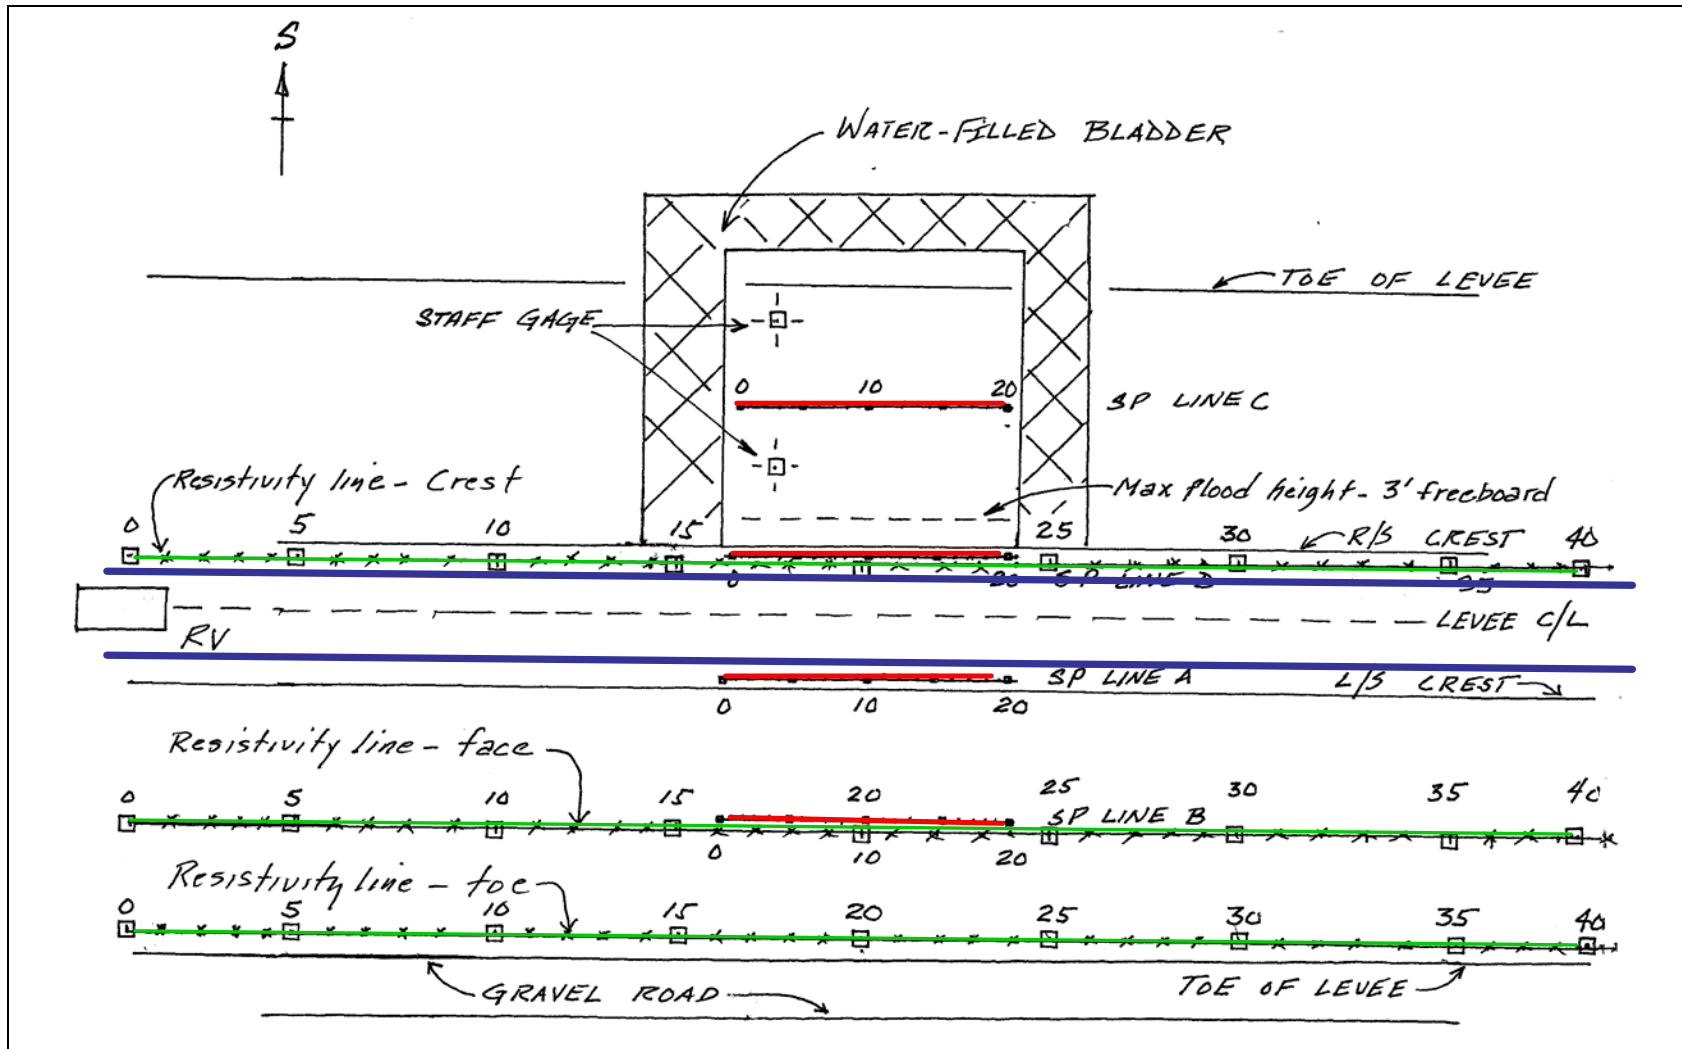 S
WATER-FILLED BLADDER
TOE OF LEVEE
STAFF GAGE
0 10 20
SP LINE C
Resistivity line - Crest
Max flood height - 3' freeboard
0 5 10 15 25 30 R/S CREST 40
0 20 SP LINE D 35
LEVEE C/L
RV
SP LINE A L/S CREST
0 10 20
Resistivity line - face
0 5 10 15 20 25 30 35 40
SP LINE B
0 10 20
Resistivity line - toe
0 5 10 15 20 25 30 35 40
GRAVEL ROAD TOE OF LEVEE